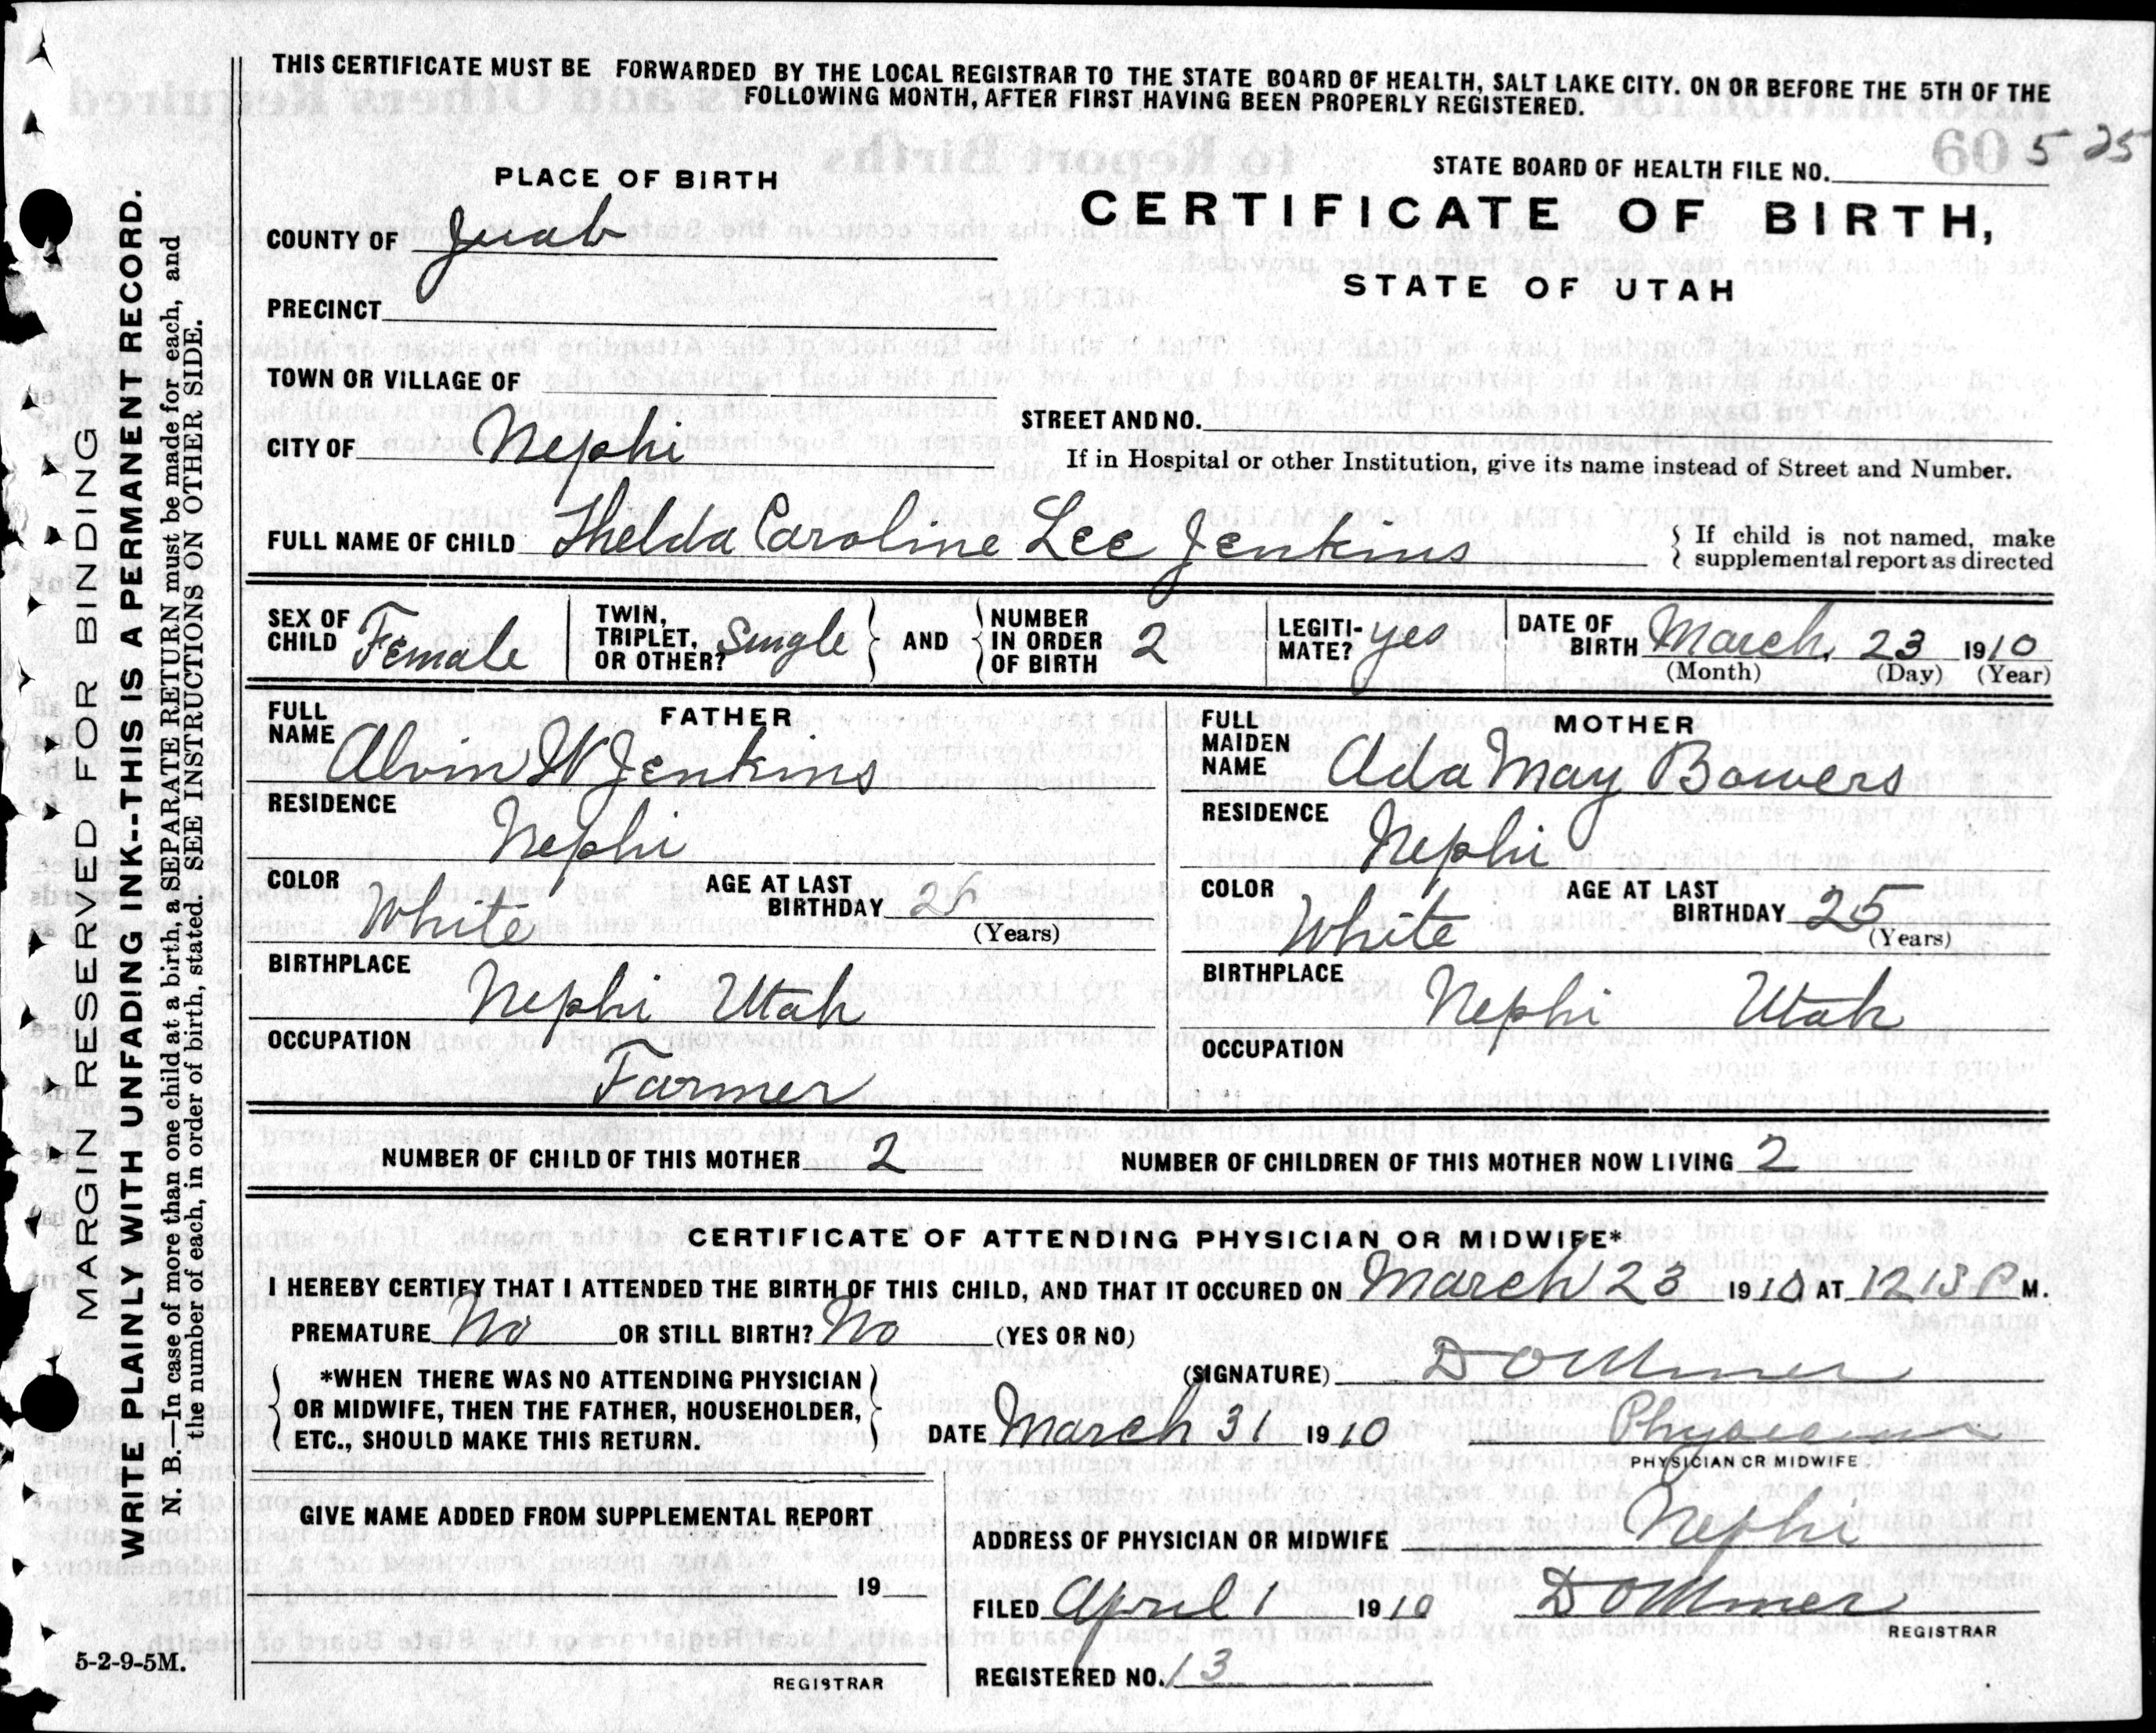 THIS CERTIFICATE MUST BE FORWARDED BY THE LOCAL REGISTRAR TO THE STATE BOARD OF HEALTH, SALT LAKE CITY. ON OR BEFORE THE 5TH OF THE
FOLLOWING MONTH, AFTER FIRST HAVING BEEN PROPERLY REGISTERED.
STATE BOARD OF HEALTH FILE NO. 5 25
PLACE OF BIRTH
CERTIFICATE OF BIRTH,
STATE OF UTAH
COUNTY OF Juab
PRECINCT
TOWN OR VILLAGE OF
CITY OF Nephi
STREET AND NO.
If in Hospital or other Institution, give its name instead of Street and Number.
FULL NAME OF CHILD Thelda Caroline Lee Jenkins
If child is not named, make
supplemental report as directed
SEX OF CHILD Female
TWIN, TRIPLET, OR OTHER? Single
AND
NUMBER IN ORDER OF BIRTH 2
LEGITI-MATE? yes
DATE OF BIRTH March, 23 1910
(Month) (Day) (Year)
FATHER
FULL NAME Alvin W Jenkins
RESIDENCE Nephi
COLOR White
AGE AT LAST BIRTHDAY
(Years)
BIRTHPLACE Nephi Utah
OCCUPATION Farmer
MOTHER
FULL MAIDEN NAME Ada May Bowers
RESIDENCE Nephi
COLOR White
AGE AT LAST BIRTHDAY 25
(Years)
BIRTHPLACE Nephi Utah
OCCUPATION
NUMBER OF CHILD OF THIS MOTHER 2
NUMBER OF CHILDREN OF THIS MOTHER NOW LIVING 2
CERTIFICATE OF ATTENDING PHYSICIAN OR MIDWIFE*
I HEREBY CERTIFY THAT I ATTENDED THE BIRTH OF THIS CHILD, AND THAT IT OCCURED ON March 23 1910 AT 12 15 P M.
PREMATURE No OR STILL BIRTH? No (YES OR NO)
*WHEN THERE WAS NO ATTENDING PHYSICIAN
OR MIDWIFE, THEN THE FATHER, HOUSEHOLDER,
ETC., SHOULD MAKE THIS RETURN.
(SIGNATURE)
DATE March 31 1910
Physician
PHYSICIAN OR MIDWIFE
GIVE NAME ADDED FROM SUPPLEMENTAL REPORT
19
REGISTRAR
ADDRESS OF PHYSICIAN OR MIDWIFE Nephi
FILED April 1 1910
REGISTRAR
REGISTERED NO. 13
MARGIN RESERVED FOR BINDING
WRITE PLAINLY WITH UNFADING INK--THIS IS A PERMANENT RECORD.
N. B.—In case of more than one child at a birth, a SEPARATE RETURN must be made for each, and
the number of each, in order of birth, stated. SEE INSTRUCTIONS ON OTHER SIDE.
5-2-9-5M.